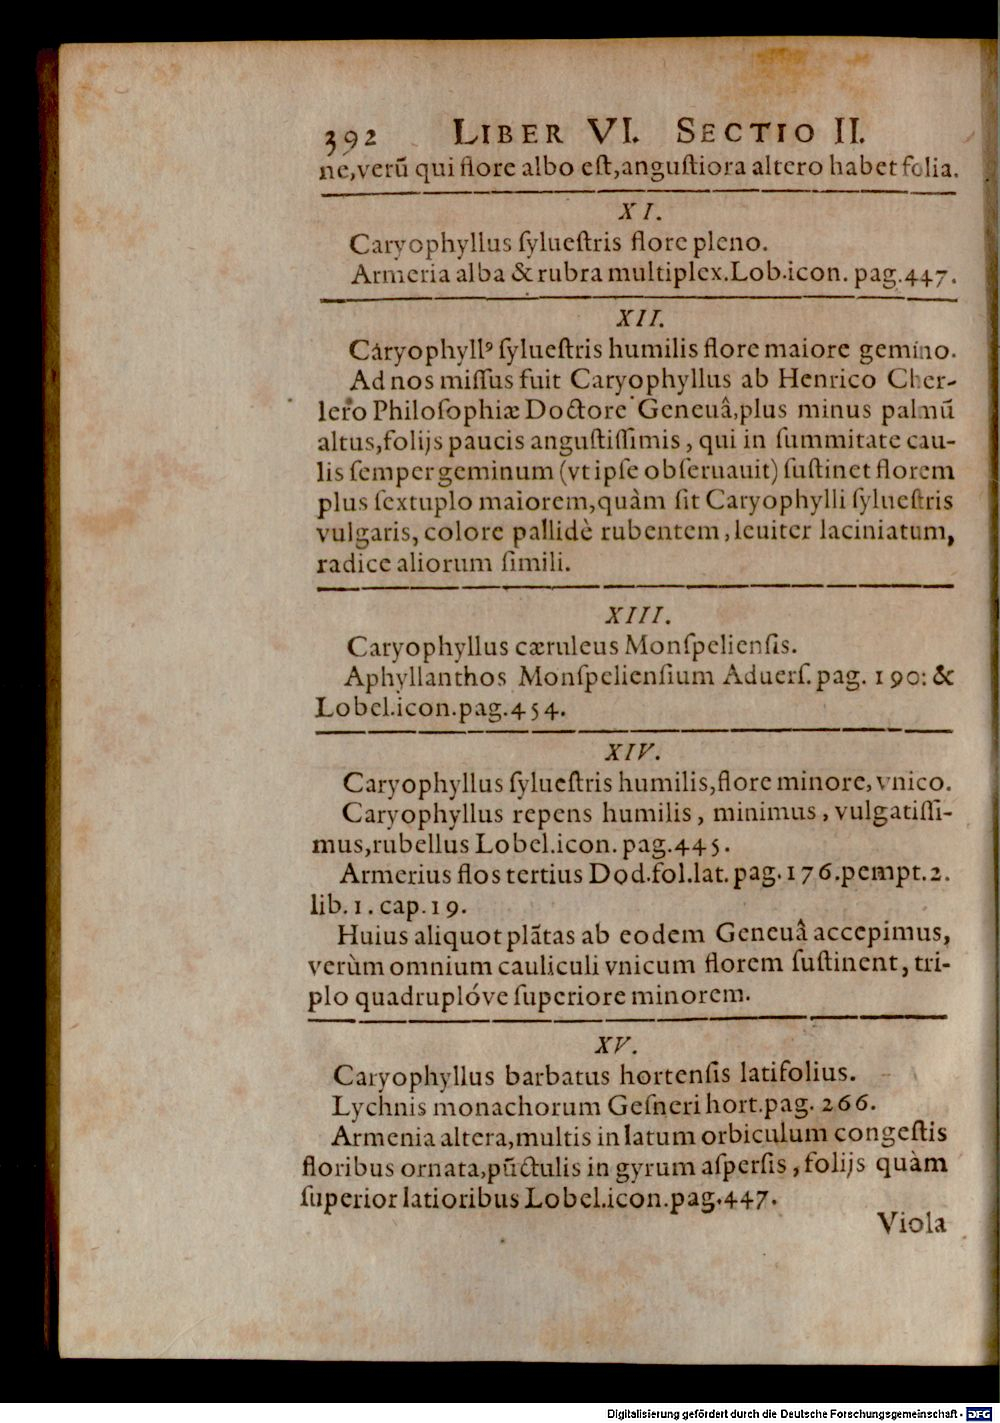 392 LIBER VI. SECTIO II.
ne,verũ qui flore albo eſt,anguſtiora altero habet folia.
XI.
Caryophyllus ſylueſtris flore pleno.
Armeria alba & rubra multiplex.Lob.icon. pag.447.
XII.
Caryophyllꝰ ſylueſtris humilis flore maiore gemino.
Ad nos miſſus fuit Caryophyllus ab Henrico Cher-
lero Philoſophiæ Doctore Geneuâ,plus minus palmũ
altus,folijs paucis anguſtiſſimis, qui in ſummitate cau-
lis ſemper geminum (vt ipſe obſeruauit) ſuſtinet florem
plus ſextuplo maiorem,quàm ſit Caryophylli ſylueſtris
vulgaris, colore pallidè rubentem, leuiter laciniatum,
radice aliorum ſimili.
XIII.
Caryophyllus cæruleus Monſpelienſis.
Aphyllanthos Monſpelienſium Aduerſ. pag. 190: &
Lobel.icon.pag.454.
XIV.
Caryophyllus ſylueſtris humilis,flore minore, vnico.
Caryophyllus repens humilis, minimus, vulgatiſſi-
mus,rubellus Lobel.icon. pag.445.
Armerius flos tertius Dod.fol.lat. pag.176.pempt.2.
lib.1. cap.19.
Huius aliquot plãtas ab eodem Geneuâ accepimus,
verùm omnium cauliculi vnicum florem ſuſtinent, tri-
plo quadruplóve ſuperiore minorem.
XV.
Caryophyllus barbatus hortenſis latifolius.
Lychnis monachorum Geſneri hort.pag. 266.
Armenia altera,multis in latum orbiculum congeſtis
floribus ornata,pũctulis in gyrum aſperſis, folijs quàm
ſuperior latioribus Lobel.icon.pag.447.
Viola
Digitalisierung gefördert durch die Deutsche Forschungsgemeinschaft - DFG